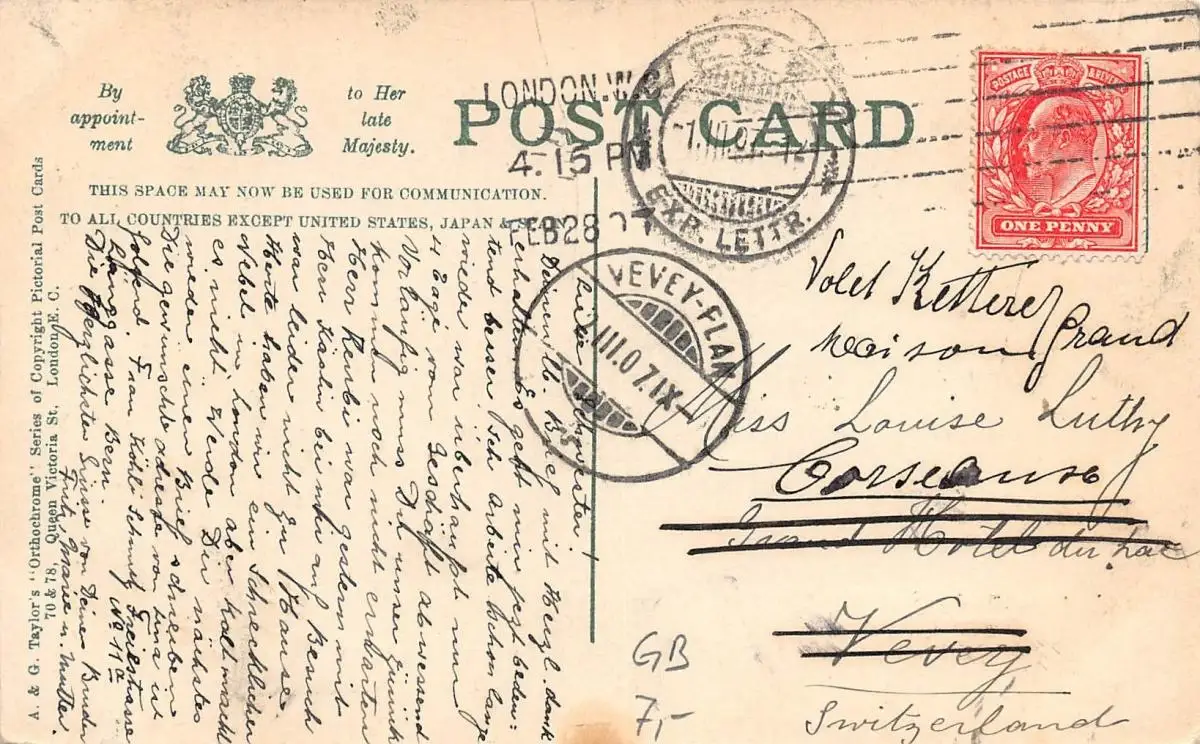 By
appoint-
ment
to Her
late
Majesty.
POST CARD
THIS SPACE MAY NOW BE USED FOR COMMUNICATION.
TO ALL COUNTRIES EXCEPT UNITED STATES, JAPAN &
A. & G. Taylor's "Orthochrome" Series of Copyright Pictorial Post Cards
70 & 78, Queen Victoria St, London, E. C.
LONDON.W.C
4.15 PM
FEB 28 07
EXP. LETTR.
VEVEY
1.III.07
POSTAGE & REVENUE
ONE PENNY
Liebe Schwester!
Deinen lb. Brief mit Herzl. dank
erhalten. Es geht mir jetzt bedeu=
tend besser. Ich arbeite schon lange
wieder, war überhaupt nur
4 Tage vom Geschäft abwesend
Vorläufig muss Dir unser
kommen noch nicht erwarten
Herr war gestern mit
Herr bei mir auf Besuch
war leider nicht zu Hause
Heute haben wir ein Schrecklicher
Nebel in London aber kalt macht
es nicht. Werde Dir nächstes
wieder einen Brief schreiben
Die gewünschte adresse von Lina ist
folgend. Frau
Länggasse Bern. No 11a
Die Herzlichsten Grüsse von Deinem Bruder
Fritz, u. Mutter.
VEVEY-PLAN
1.III.07.IX
Volet Ketterer
Maison Grand
Miss Louise Luthy
Corseaux
Grand Hotel du Lac
Vevey
Switzerland
GB
7,-